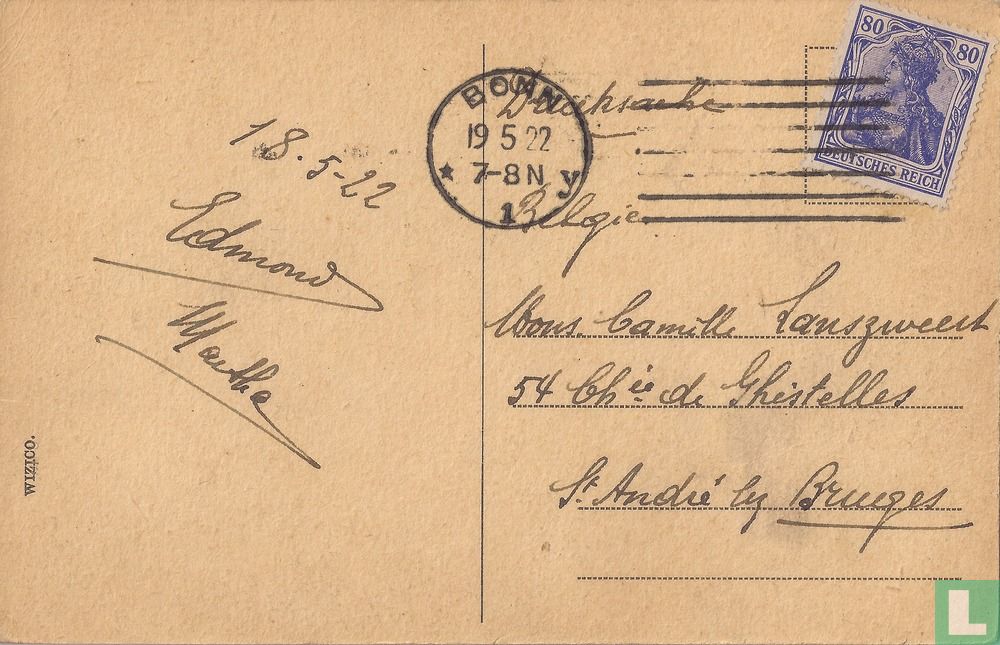 18.5-22
Edmond
Martha
WIZICO.
BONN
19 5 22
7-8 N
* y
1
80 80
DEUTSCHES REICH
Drucksache
Belgie
Mons. Camille Lanszweert
54 Chie de Ghistelles
St. André lez Bruges
L